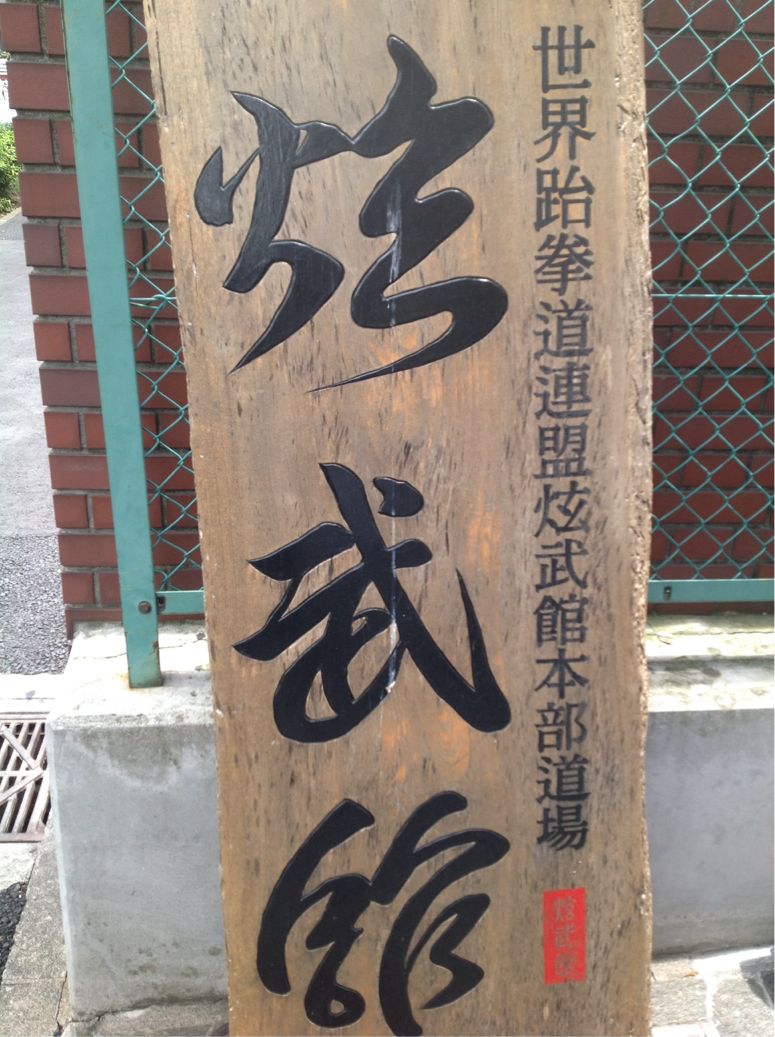 世界跆拳道連盟炫武館本部道場
炫武館
炫武館